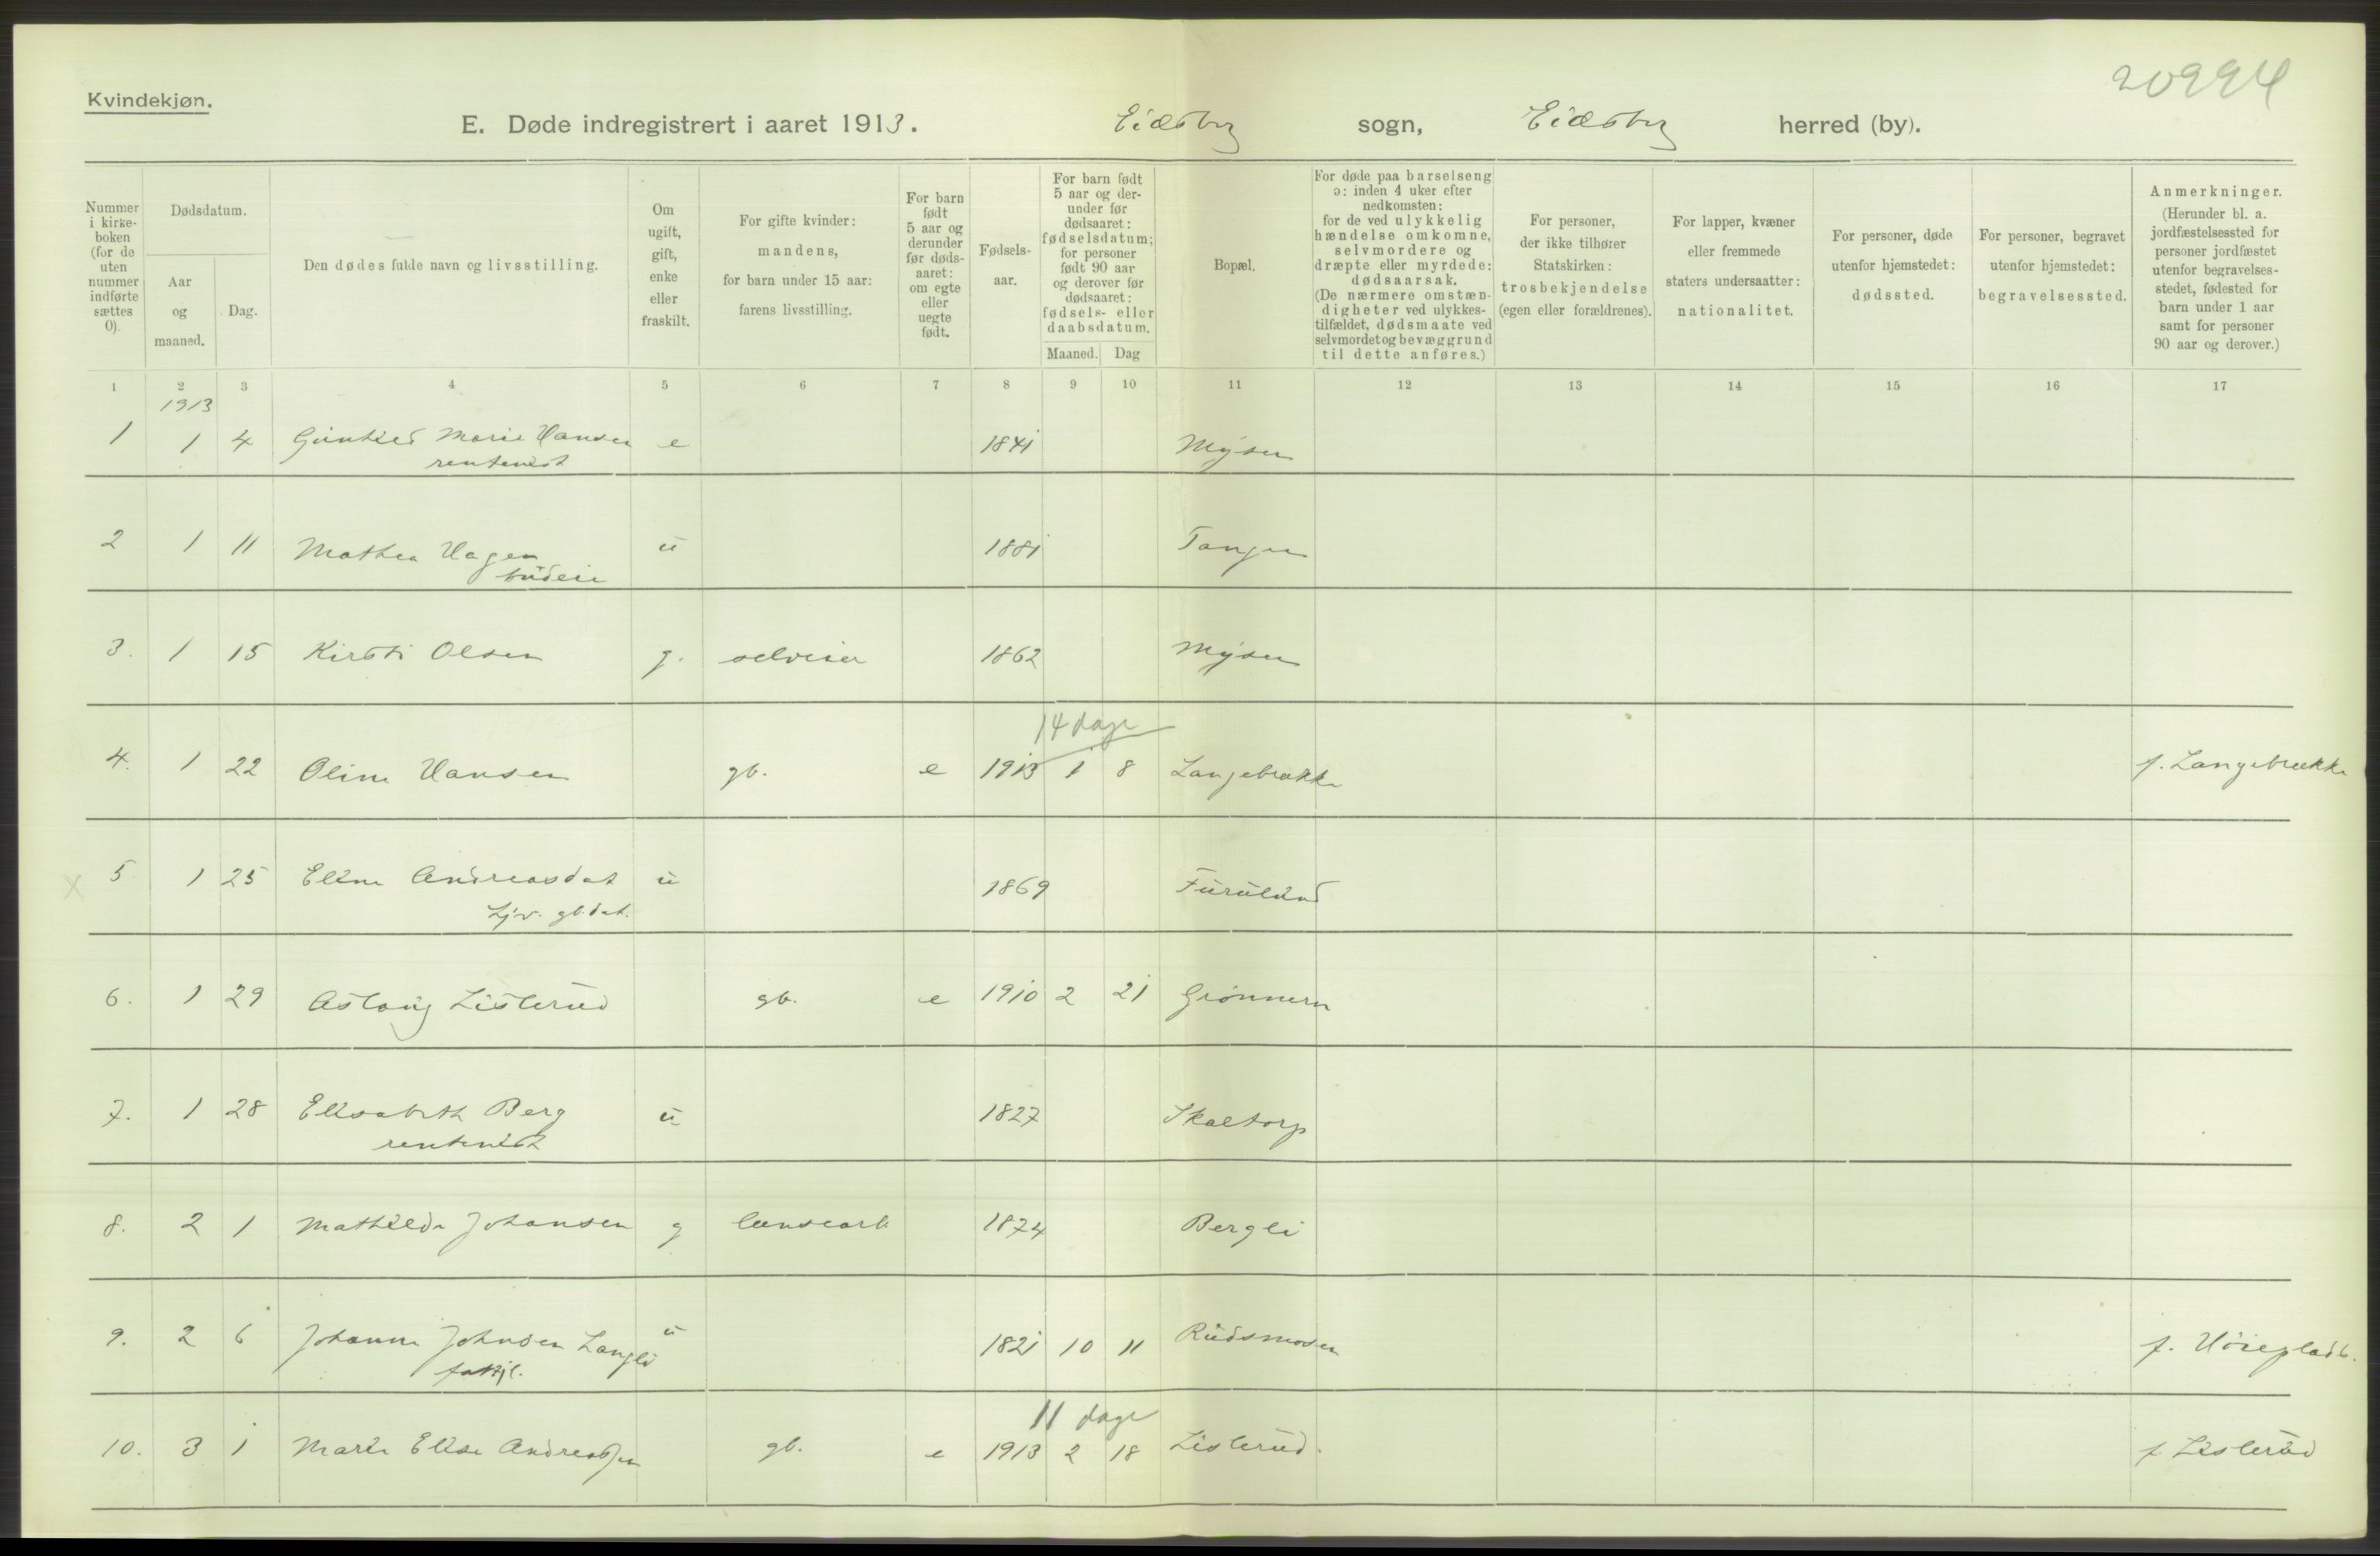 20994
Kvindekjøn.
E. Døde indregistrert i aaret 1913. Eidsberg sogn, Eidsberg herred (by).
Nummer i kirke-boken (for de uten nummer indførte sættes 0).
Dødsdatum.
Aar og maaned.
Dag.
Den dødes fulde navn og livsstilling.
Om ugift, gift, enke eller fraskilt.
For gifte kvinder: mandens, for barn under 15 aar: farens livsstilling.
For barn født 5 aar og derunder før døds-aaret: om egte eller uegte født.
Fødsels-aar.
For barn født 5 aar og der-under før dødsaaret: fødselsdatum; for personer født 90 aar og derover før dødsaaret: fødsels- eller daabsdatum.
Maaned. Dag
Bopæl.
For døde paa barselseng ɔ: inden 4 uker efter nedkomsten: for de ved ulykkelig hændelse omkomne, selvmordere og dræpte eller myrdede: dødsaarsak. (De nærmere omstæn-digheter ved ulykkes-tilfældet, dødsmaate ved selvmordet og bevæggrund til dette anføres.)
For personer, der ikke tilhører Statskirken: trosbekjendelse (egen eller forældrenes).
For lapper, kvæner eller fremmede staters undersaatter: nationalitet.
For personer, døde utenfor hjemstedet: dødssted.
For personer, begravet utenfor hjemstedet: begravelsessted.
Anmerkninger. (Herunder bl. a. jordfæstelsessted for personer jordfæstet utenfor begravelses-stedet, fødested for barn under 1 aar samt for personer 90 aar og derover.)
1 2 3 4 5 6 7 8 9 10 11 12 13 14 15 16 17
1913
1 1 4 Marie Hansen e 1841 Mysen
rentenist
2 1 11 Mathea Hagen u 1881 Tangen
budeie
3. 1 15 Kirsti Olsen g. selveier 1862 Mysen
14 dage
4. 1 22 Oline Hansen gb. e 1913 1 8 Langebrække f. Langebrække
x 5 1 25 Eline Andreasdat u 1869 Furulund
gb.dat.
6. 1 29 Aslaug Listerud gb. e 1910 2 21 Grønnern
7. 1 28 Elisabeth Berg u 1827 Skaltorp
rentenist
8. 2 1 Mathilde Johansen g 1874 Bergli
9. 2 6 Johanne Johnsen Langli u 1821 10 11 Rudsmosen f.
11 dage
10. 3 1 Marie Elise Andreassen gb. e 1913 2 18 Listerud. f Listerud